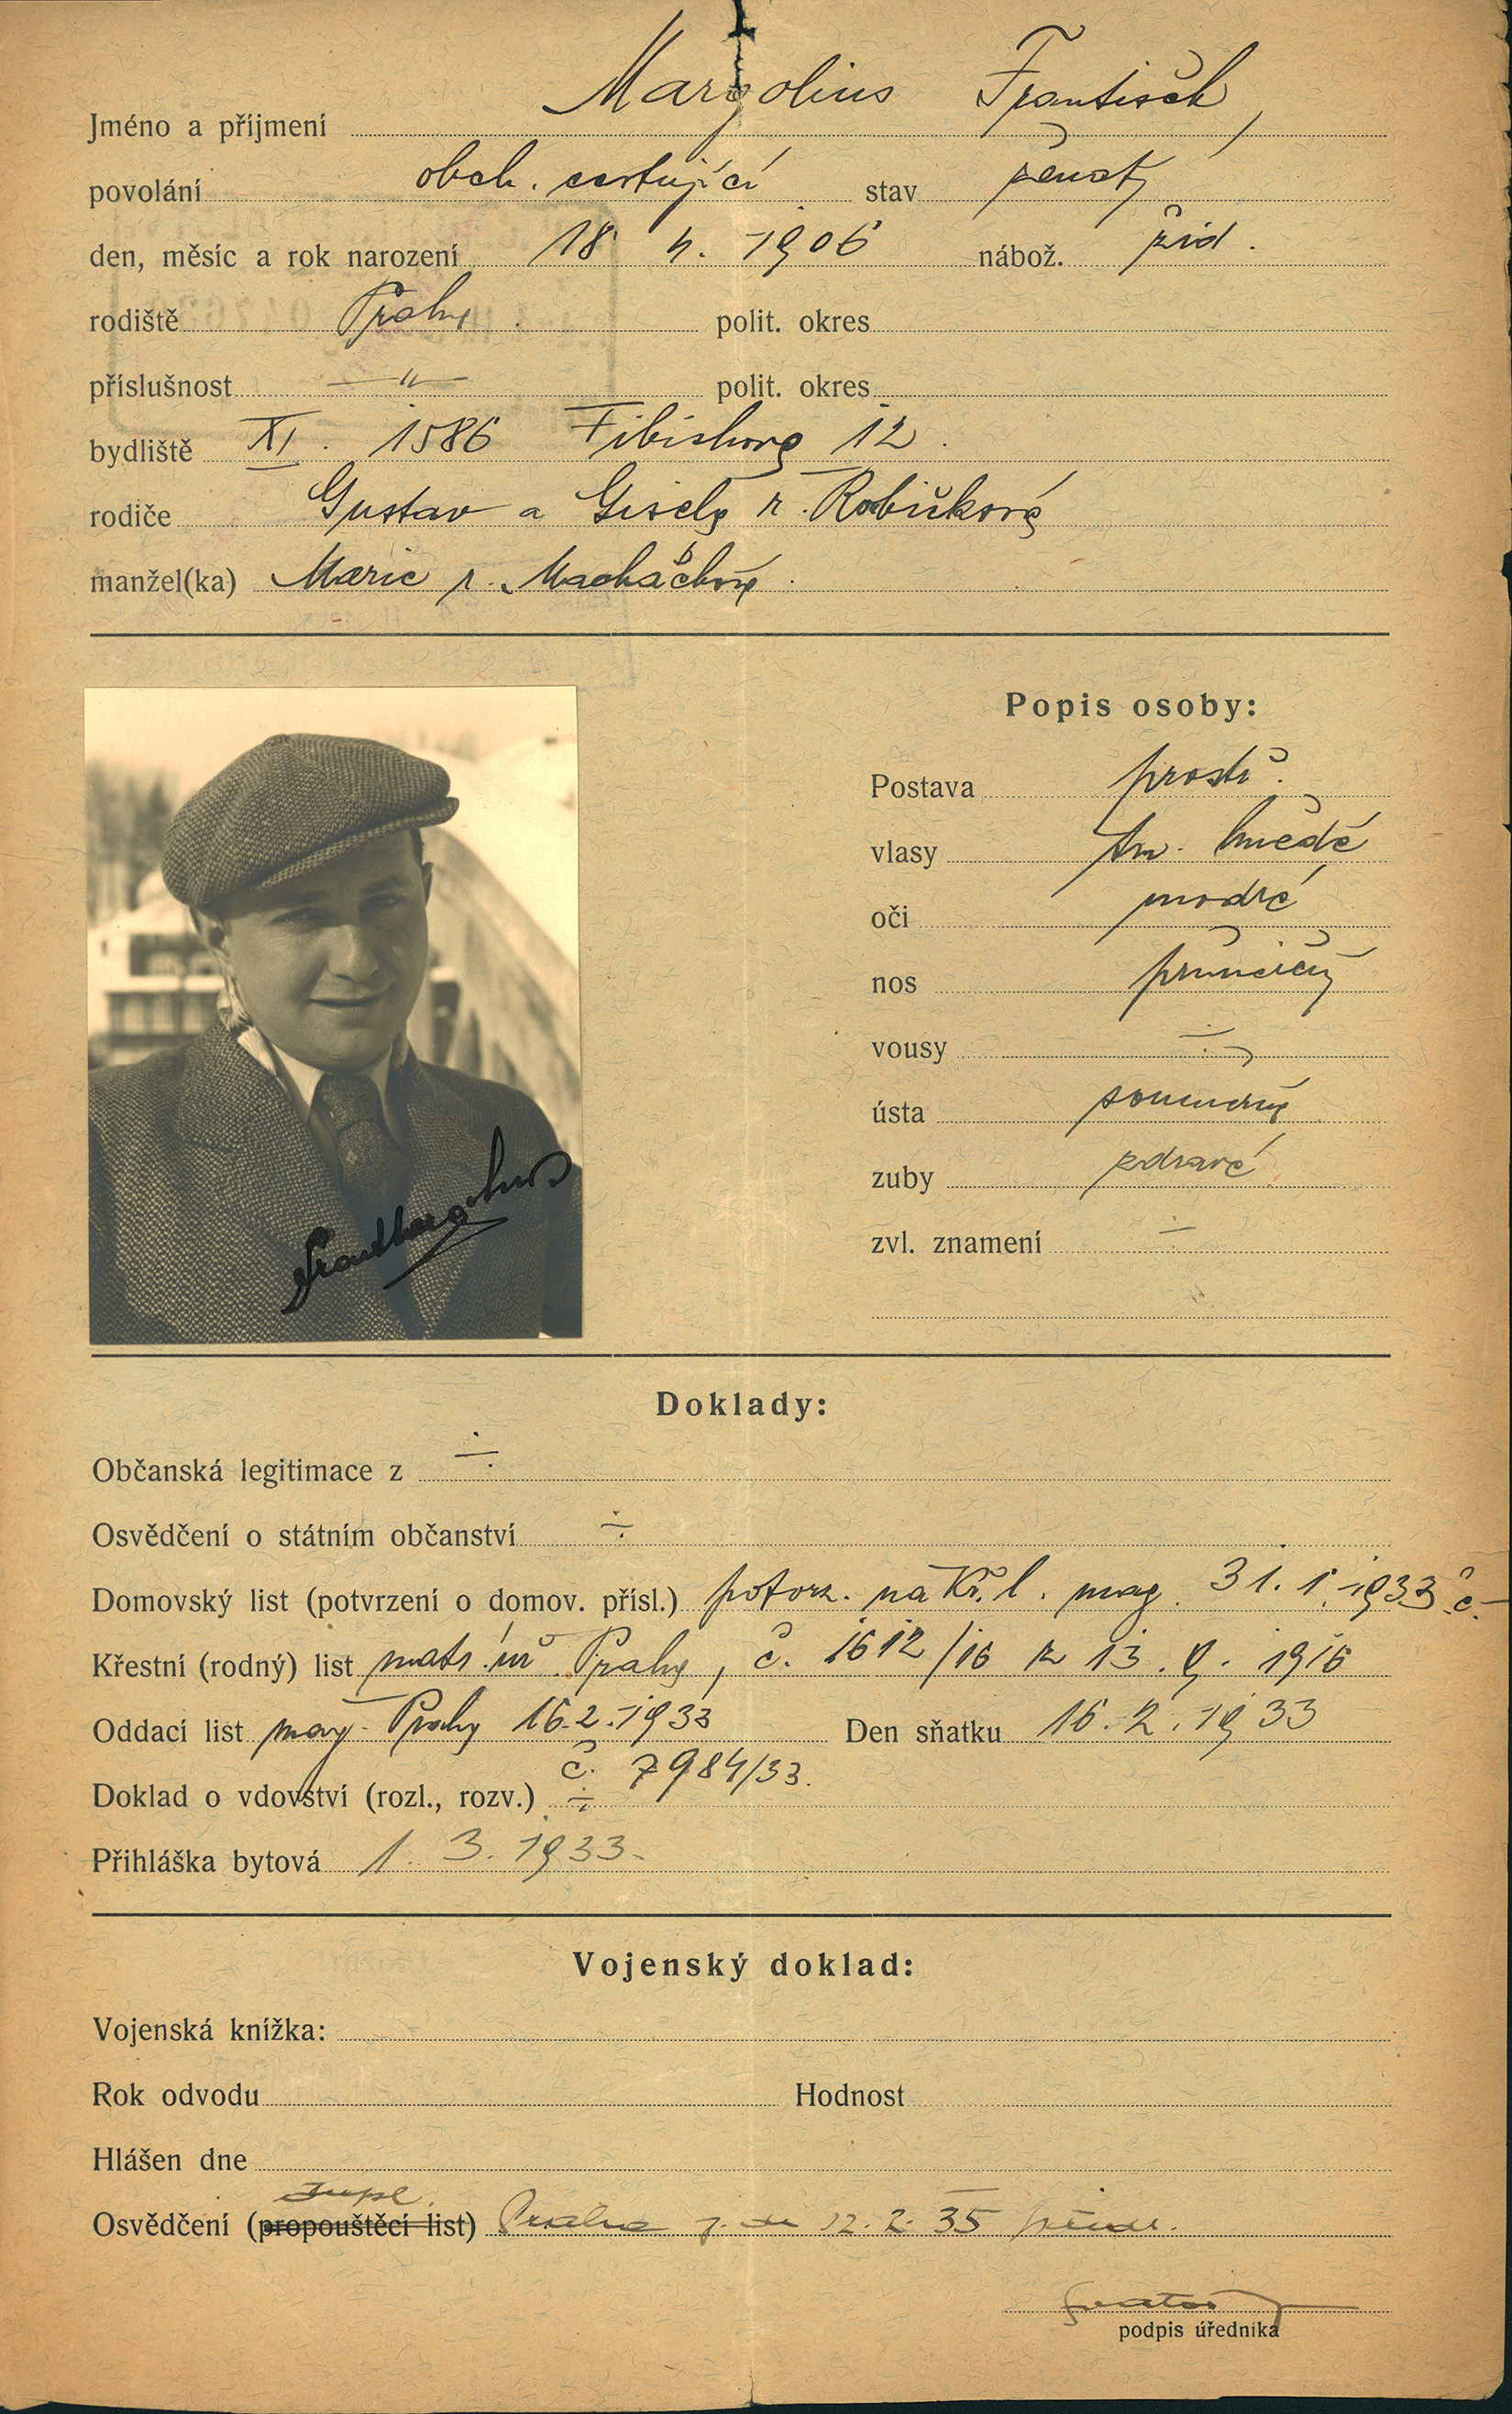 Jméno a příjmení Margolius František
povolání obch. cestující stav ženatý
den, měsíc a rok narození 18 4. 1906 nábož. žid.
rodiště Praha polit. okres
příslušnost —〃— polit. okres
bydliště XI. 1586 Fibichova 12.
rodiče Gustav a Gisela r.
manžel(ka) Marie r. Macháčková
Popis osoby:
Postava prostř.
vlasy tm. hnědé
oči modré
nos průměrný
vousy ÷
ústa souměrná
zuby zdravé
zvl. znamení ÷
Doklady:
Občanská legitimace z ÷
Osvědčení o státním občanství ÷
Domovský list (potvrzení o domov. přísl.) potvrz. na kř. l. mag. 31. 1. 1933 č.
Křestní (rodný) list matr. úř. Praha, č. 1612/16 z 13. 9. 1916
Oddací list mag. Prahy 16.2.1933 Den sňatku 16. 2. 1933
č. 7984/33.
Doklad o vdovství (rozl., rozv.) ÷
Přihláška bytová 1. 3. 1933.
Vojenský doklad:
Vojenská knížka:
Rok odvodu Hodnost
Hlášen dne
Osvědčení (propouštěcí list) Praha 12. 2. 35
podpis úředníka